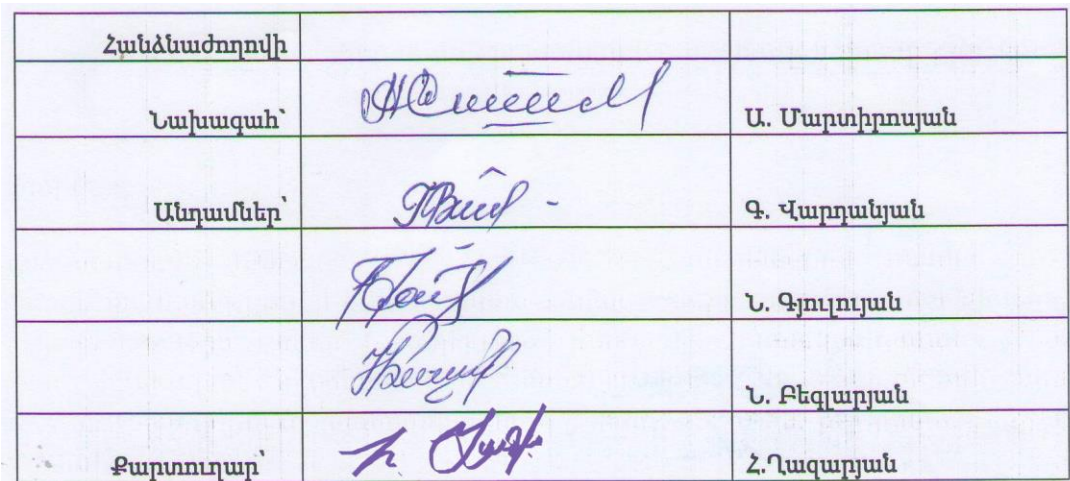 Հանձնաժողովի
Նախագահ՝ Ա. Մարտիրոսյան
Անդամներ՝ Գ. Վարդանյան
Ն. Գյուլոյան
Ն. Բեգլարյան
Քարտուղար՝ Հ.Ղազարյան